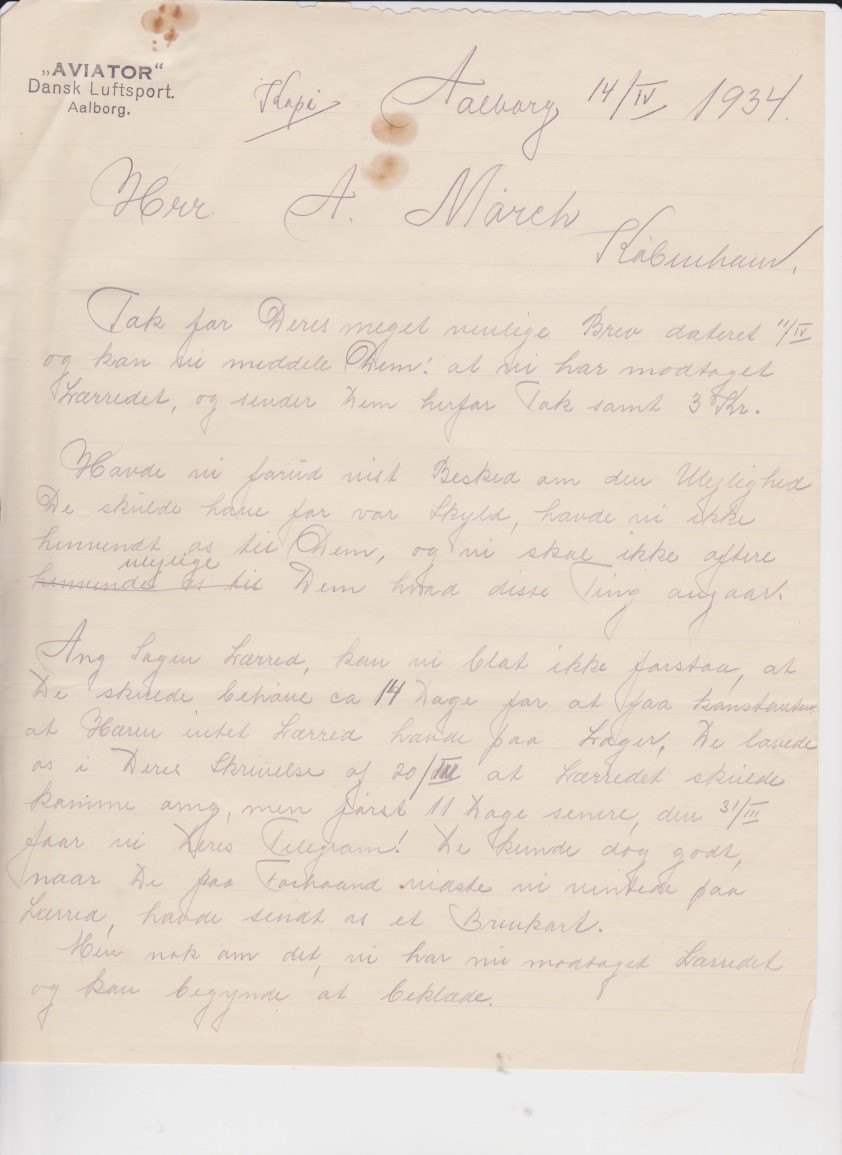 „AVIATOR“
Dansk Luftsport.
Aalborg.
Kopi Aalborg 14/IV 1934.
Herr A. March
København.
Tak for Deres meget venlige Brev dateret 11/IV
og kan vi meddele Dem: at vi har modtaget
Lærredet, og sender Dem herfor Tak samt 3 Kr.
Havde vi forud vist Besked om den Ulejlighed
De skulde have for vor Skyld, havde vi ikke
henvendt os til Dem, og vi skal ikke oftere
ulejlige
henvendt os til Dem hvad disse Ting angaar.
Ang Sagen Lærred, kan vi blot ikke forstaa, at
De skulde behøve ca 14 Dage for at faa konstateret
at Hæren intet Lærred havde paa Lager. De lovede
os i Deres Skrivelse af 20/III at Lærredet skulde
komme omg, men først 11 Dage senere, den 31/III
faar vi Deres Telegram! De kunde dog godt,
naar De paa Forhaand vidste vi ventede paa
Lærred, havde sendt os et Brevkort.
Men nok om det, vi har nu modtaget Lærredet
og kan begynde at beklæde.